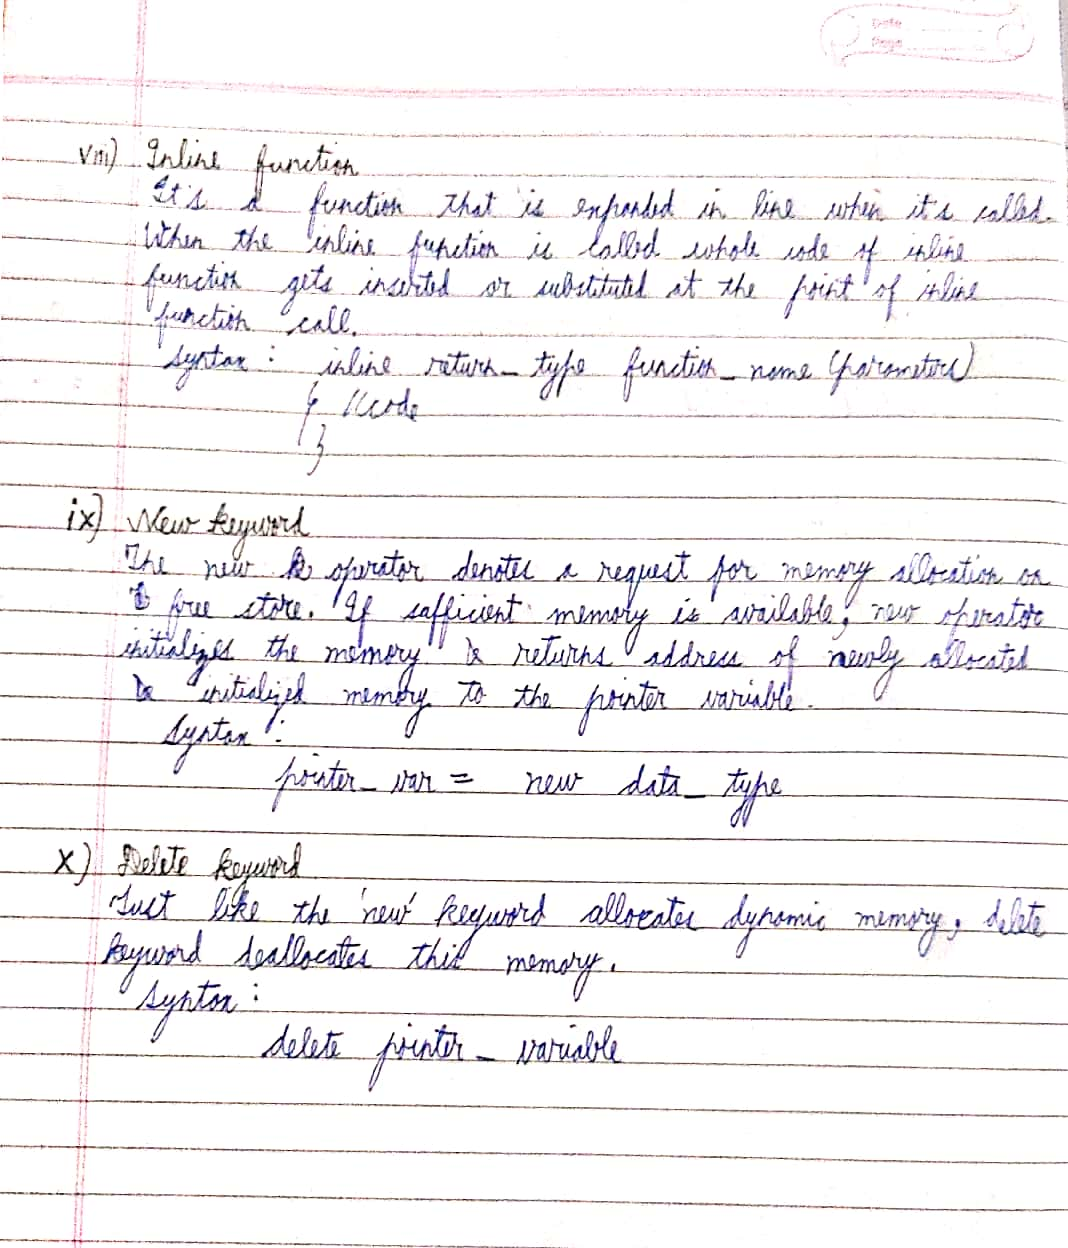 Date
Page
viii) Inline function
It's a function that is expanded in line when it's called.
When the inline function is called whole code of inline
function gets inserted or substituted at the point of inline
function call.
syntax : inline return_type function_name (parameters)
{ //code
}
ix) New keyword
The new operator denotes a request for memory allocation on
free store. If sufficient memory is available, new operator
initializes the memory & returns address of newly allocated
& initialized memory to the pointer variable.
Syntax :
pointer_var = new data_type
x) Delete keyword
Just like the 'new' keyword allocates dynamic memory, delete
keyword deallocates this memory.
syntax :
delete pointer_variable